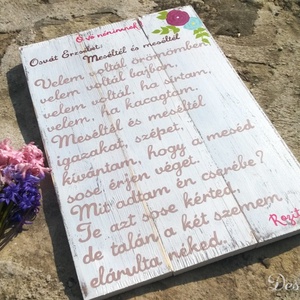 Óvó nénimnek!
Osvát Erzsébet:
Meséltél és meséltél
Velem voltál örömömben,
velem voltál bajban,
velem voltál, ha sírtam,
velem, ha kacagtam.
Meséltél és meséltél
igazakat, szépet,
kívántam, hogy a meséd
sose érjen véget.
Mit adtam én cserébe?
Te azt sose kérted,
de talán a két szemem
elárulta néked.